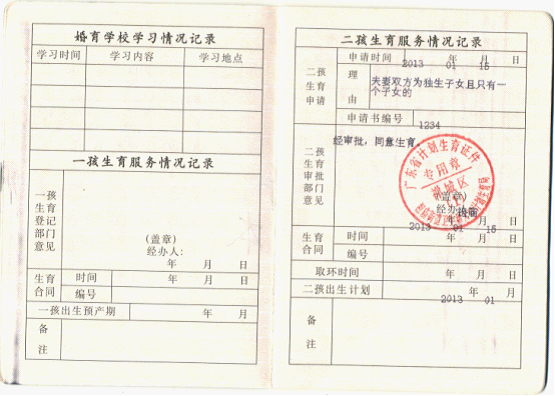 婚育学校学习情况记录
学习时间 学习内容 学习地点
一孩生育服务情况记录
一孩生育登记部门意见
(盖章)
经办人:
年 月 日
生育合同 时间 年 月 日
编号
一孩出生预产期 年 月
备注
二孩生育服务情况记录
二孩生育申请
申请时间 2013 年 01 月 15 日
理由
夫妻双方为独生子女且只有一
个子女的
申请书编号 1234
二孩生育审批部门意见
经审批，同意生育。
广东省计划生育证件
专用章
城区
(盖章)
经办
2013 年 01 月 15 日
生育合同 时间 年 月 日
编号
取环时间 年 月 日
二孩出生计划 2013 年 01 月
备注